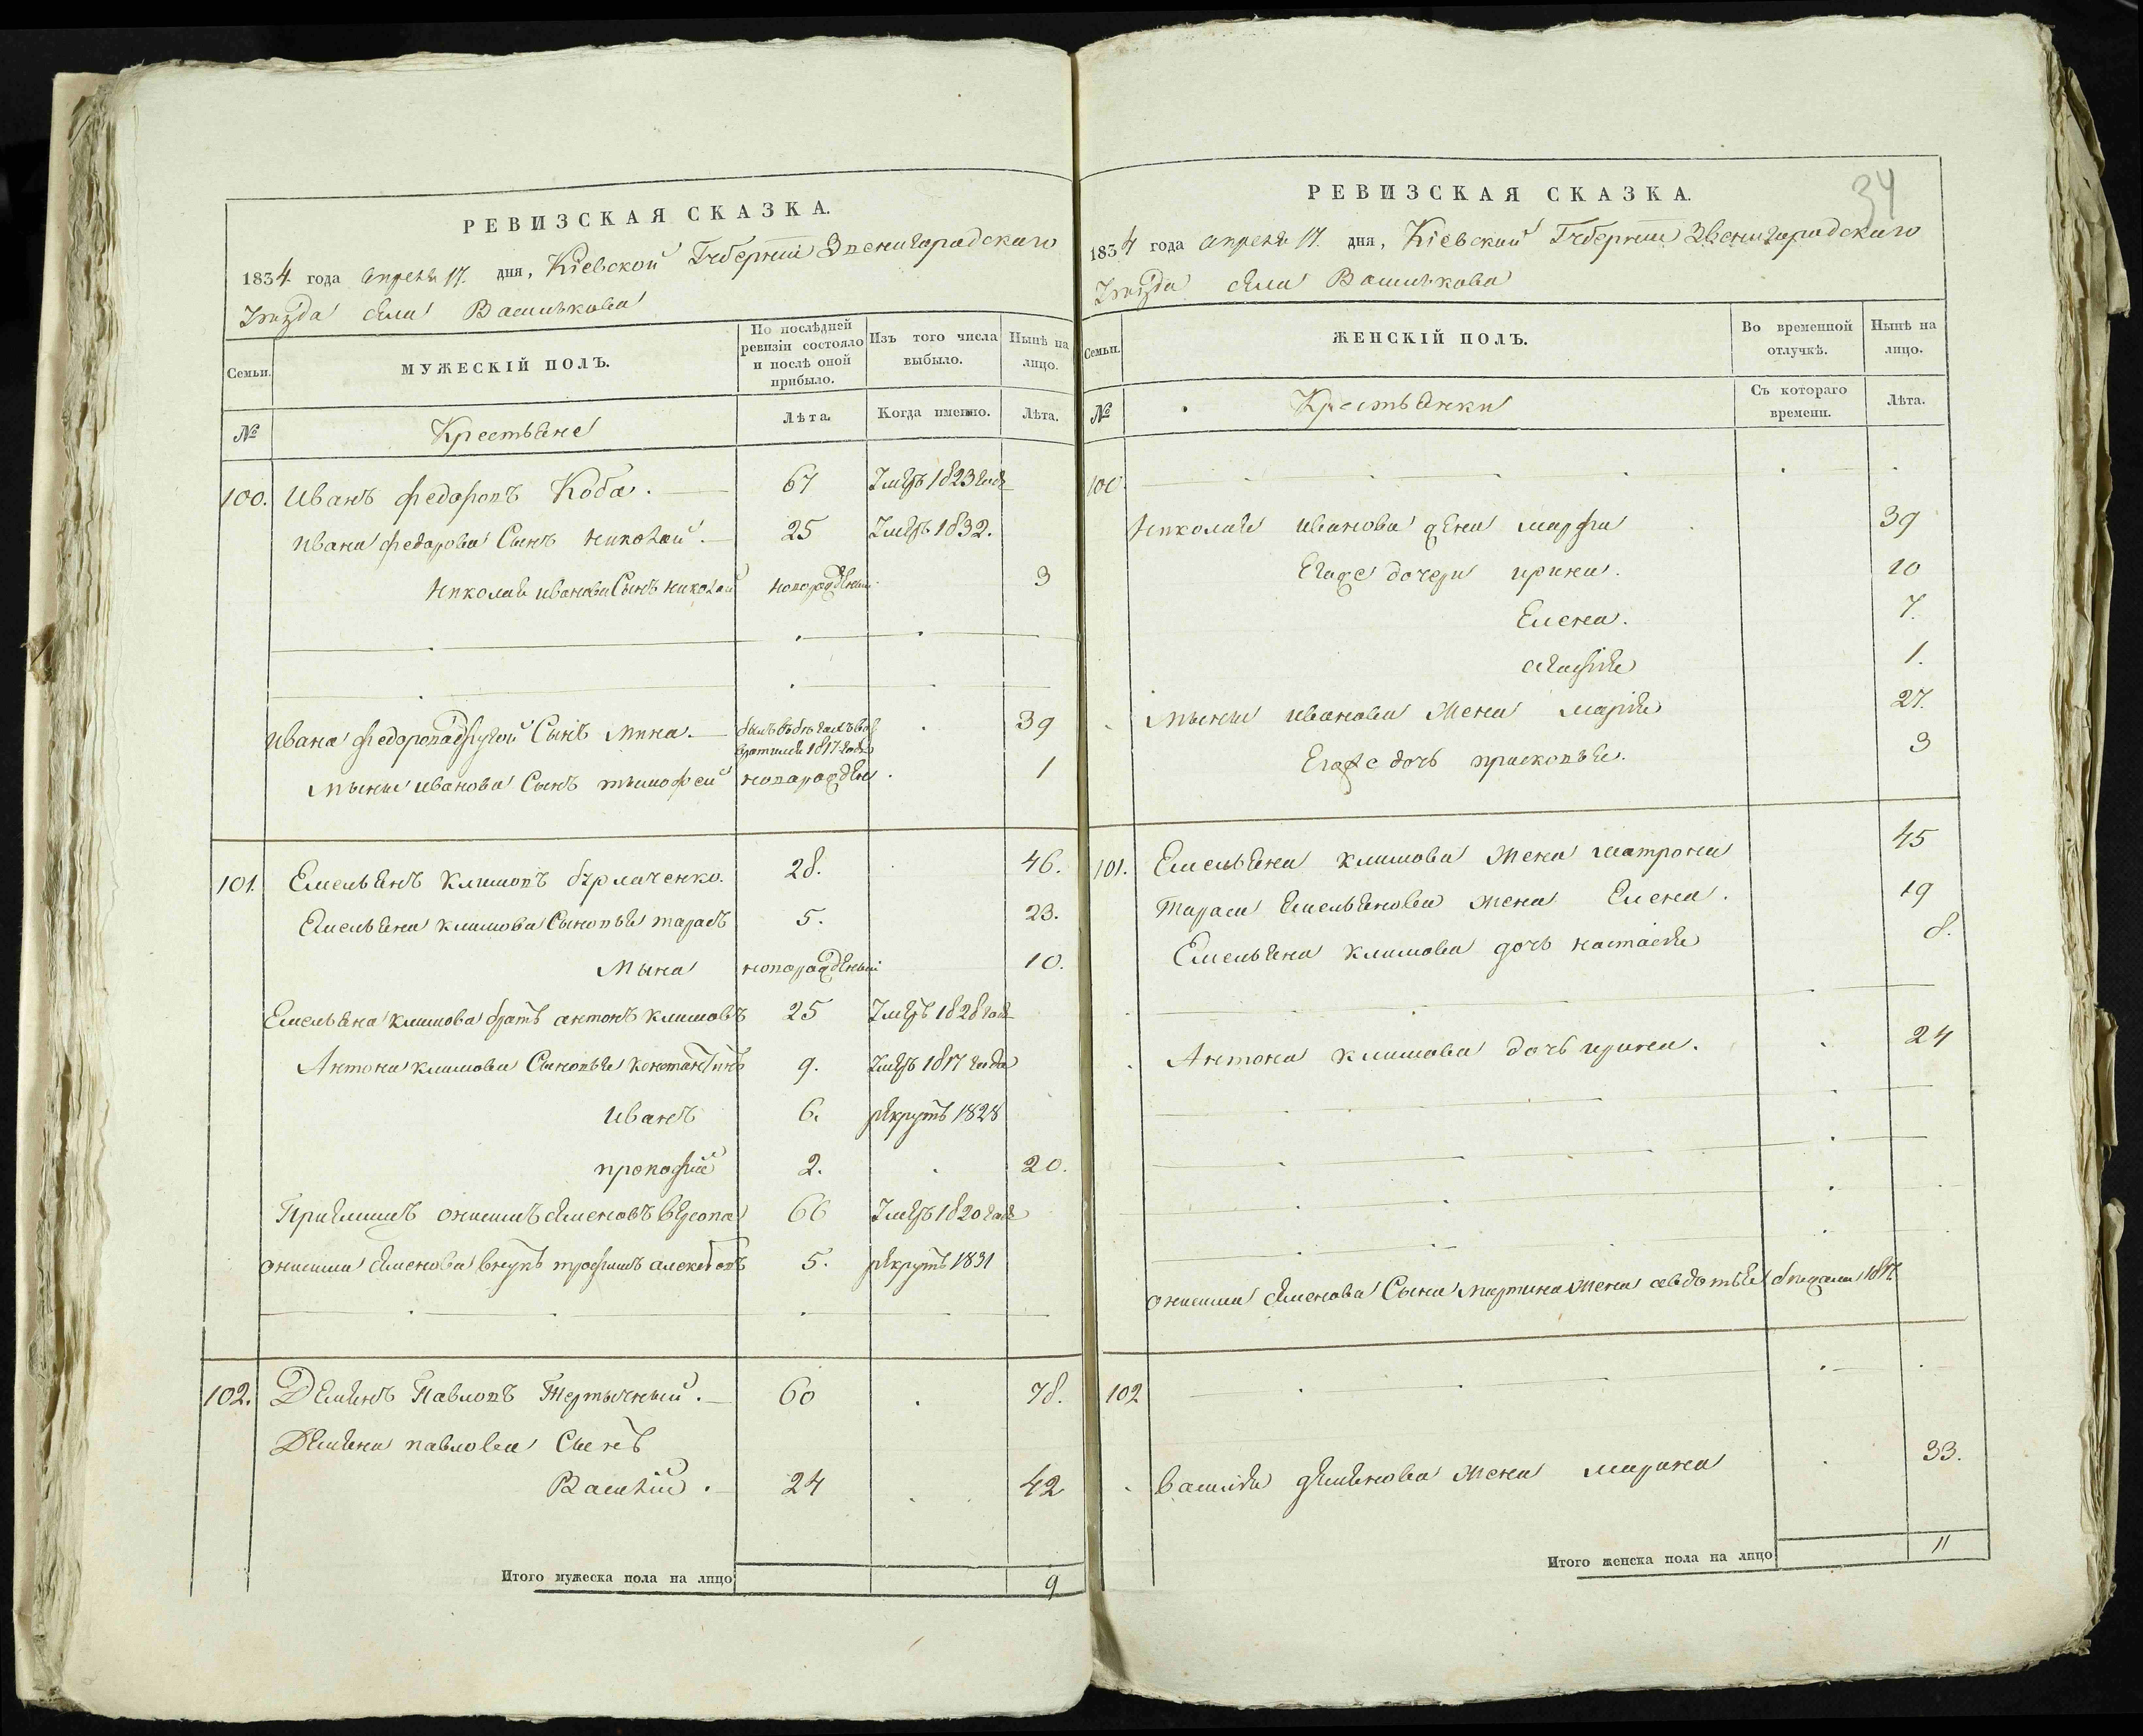 РЕВИЗСКАЯ СКАЗКА.
1834 года апреля 17. дня, Кіевской Губерніи Звенигородскаго
Уезда села Василькова
Семьи.
МУЖЕСКІЙ ПОЛЪ.
По послѣдней ревизіи состояло и послѣ оной прибыло.
Изъ того числа выбыло.
Нынѣ на лицо.
№
Крестьяне
Лѣта.
Когда именно.
Лѣта.
100. Иванъ федоровъ Коба. 67 Умеръ 1823 года
ивана федорова Сынъ николай. 25 Умеръ 1832.
николая иванова Сынъ николай новорожденый 3
ивана федорова другой Сынъ мина. былъ въ бегахъ возвратился 1817 года 39
мыны иванова Сынъ тымофей новорожден 1
101. Емельянъ климовъ бурлаченко. 28. 46.
Емельяна климова Сыновья тарасъ 5. 23.
мына новорожденый 10.
Емельяна климова братъ антонъ климовъ 25 Умеръ 1828 года
Антона климова Сыновья константинъ 9. Умеръ 1817 года
иванъ 6. рекрутъ 1828
прокофій 2. 20.
Пріемышъ онисимъ семеновъ 66 Умеръ 1820 года
онисима семенова внукъ трофимъ 5. рекрутъ 1831
102. Демянъ Павловъ Тертычный. 60 78.
Демяна павлова Сынъ
Василій. 24 42
Итого мужеска пола на лицо 9
34
РЕВИЗСКАЯ СКАЗКА.
1834 года апреля 17. дня, Кіевской Губерніи Звенигородскаго
Уезда села Василькова
Семьи.
ЖЕНСКІЙ ПОЛЪ.
Во временной отлучкѣ.
Нынѣ на лицо.
№
Крестьянки
Съ котораго времени.
Лѣта.
100.
николая иванова жена марфа 39
Егоже дочери ирина. 10
Елена. 7.
агафія 1.
мыны иванова жена марія 27.
Егоже дочь присковья. 3
101. Емельяна климова жена матрона 45
тараса Емельянова жена Елена. 19
Емельяна климова дочь настасія 8.
Антона климова дочь ирина. 24
онисима семенова Сына мартина жена авдотья бежала 1817.
102
василія демянова жена марина 33.
Итого женска пола на лицо 11